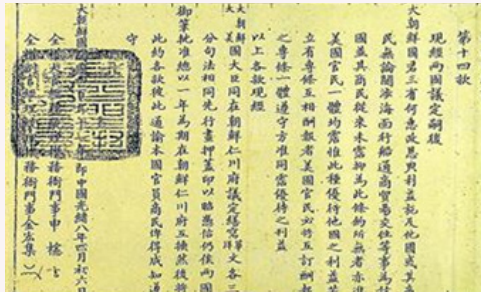 第十四款
現經兩國議定嗣後
大朝鮮國君主有何惠政恩典利益施及他國或其商
民無論關涉海面行船通商貿易交往等事為該
國並其商民從來未霑抑為此條約所無者亦准
美國官民一體均霑惟此種優待他國之利益若
立有專條互相酬報者美國官民必將互訂酬報
之專條一體遵守方准同霑優待之利益
以上各款現經
大朝鮮
大美國大臣同在朝鮮仁川府議定繕寫華洋文各三
分句法相同先行畫押蓋印以昭憑信仍俟兩國
御筆批准總以一年為期在朝鮮仁川府互換然後將
此約各款彼此通諭本國官員商民俾得咸知遵
守
大朝鮮國 年即中國光緒八年四月初六日
全權 務衙門事申櫶
全權 機務衙門事金宏集